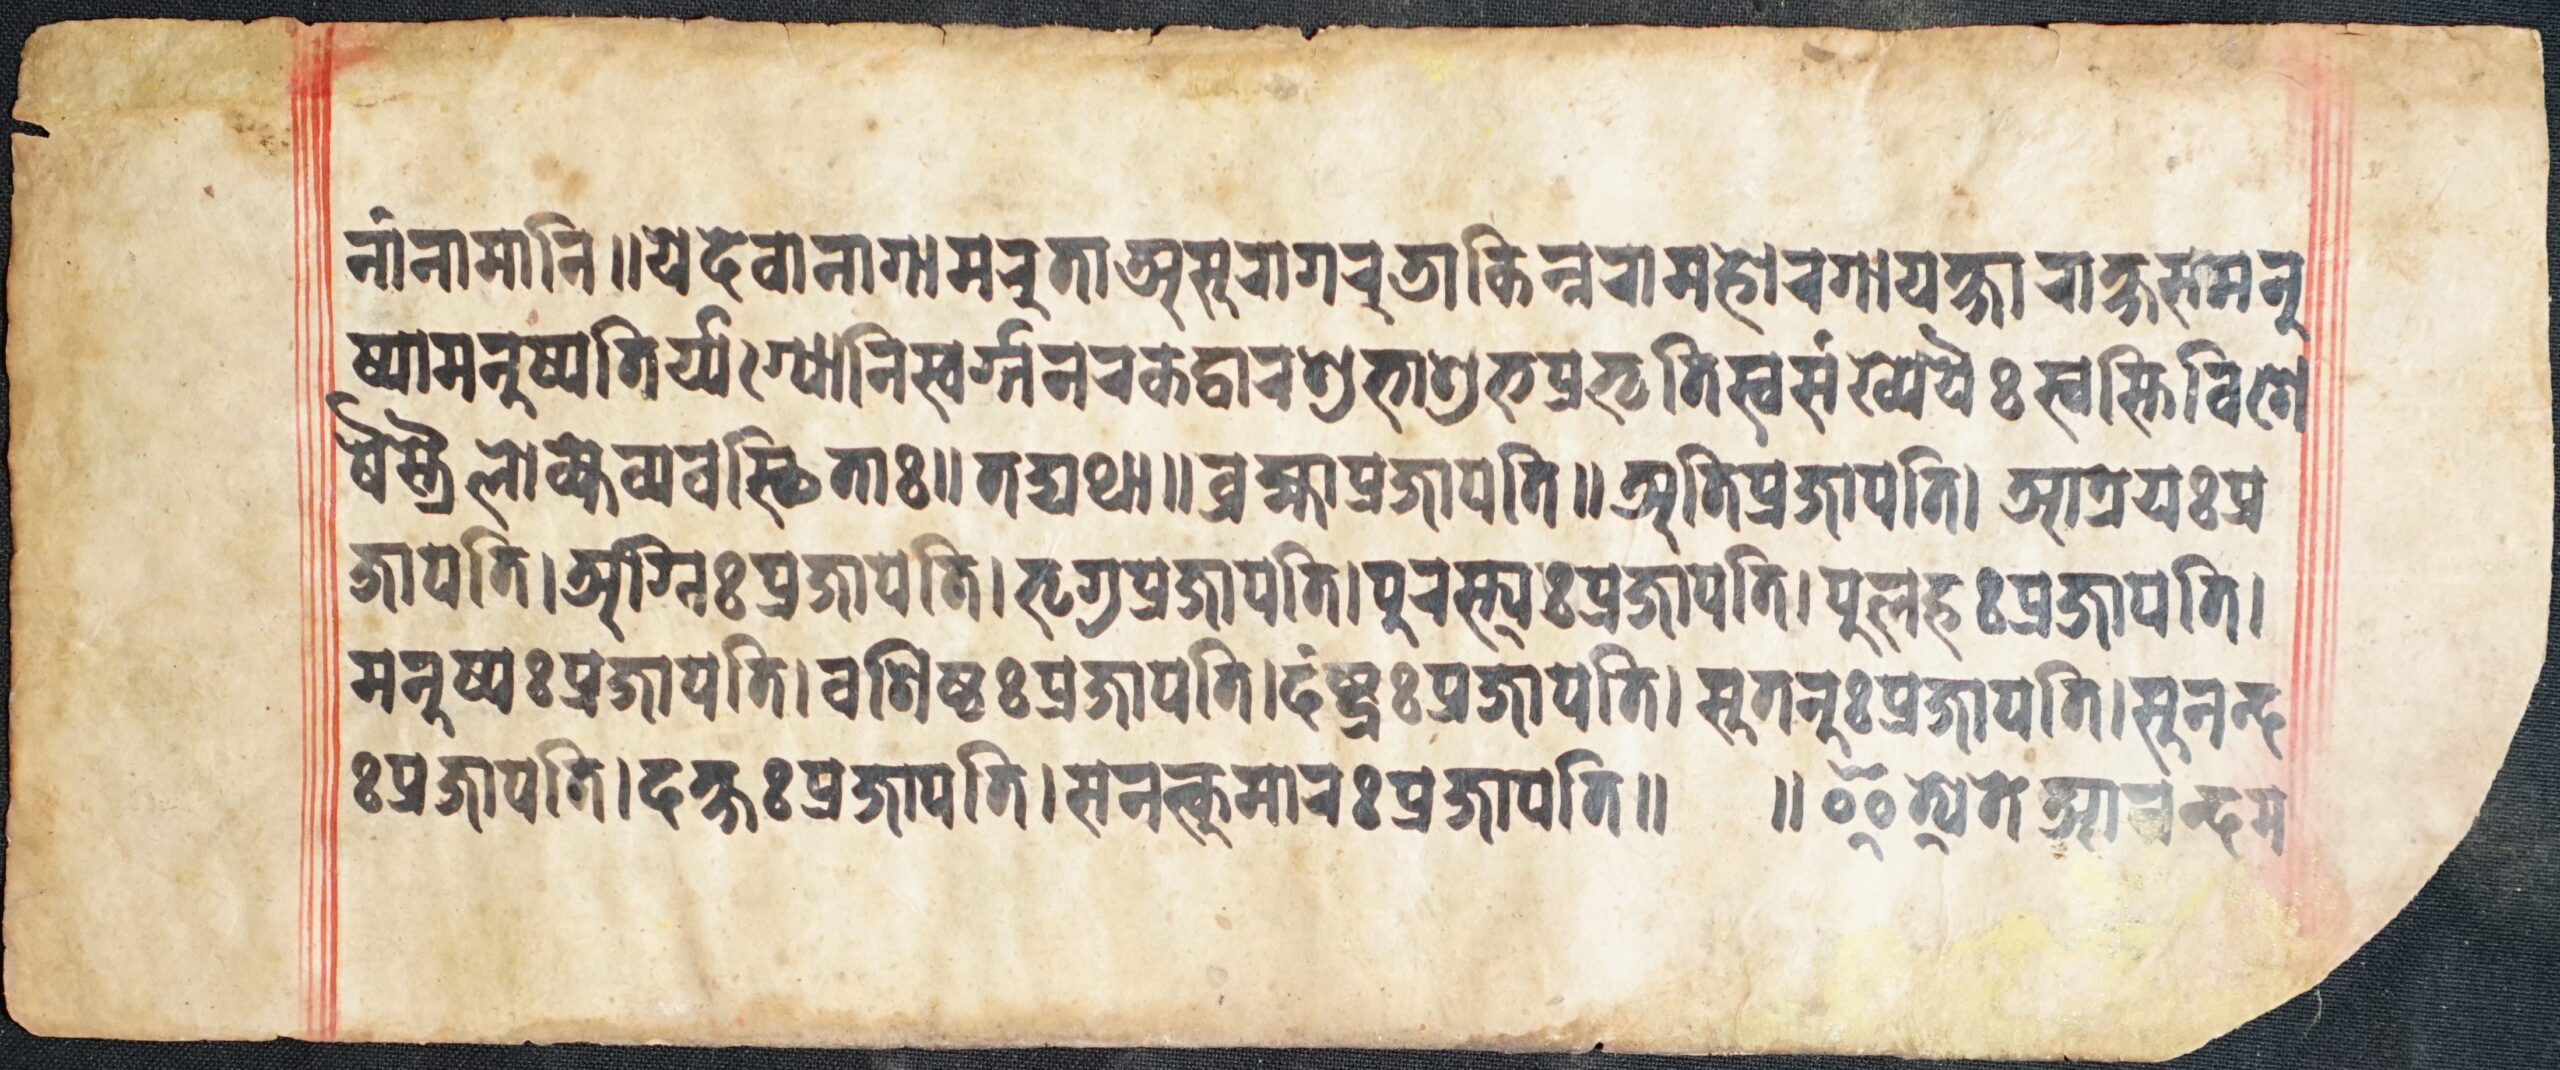 नांनामानि॥येदेवानागामरुताअसुरागरुडाकिन्नरामहोरगायक्षाराक्षसमनु
ष्यामनुष्यतिर्य्यग्योनिस्वर्ग्गनरकद्वारशुभाशुभप्रभृतिस्वसंख्येयैःस्वस्तिविशे
षैस्त्रैलोक्यव्यवस्थिताः॥तद्यथा॥ब्रह्माप्रजापति॥अतिप्रजापति। आत्रयःप्र
जापति।अग्निःप्रजापति।भृगुप्रजापति।पुरस्त्यःप्रजापति।पुलहःप्रजापति।
मनुष्यःप्रजापति।वशिष्ठःप्रजापति।दंष्ट्रःप्रजापति।सुतनुःप्रजापति।सुनन्द
ःप्रजापति।दक्षःप्रजापति।सनत्कुमारःप्रजापति॥ ॥ इँत्येते आनन्दम